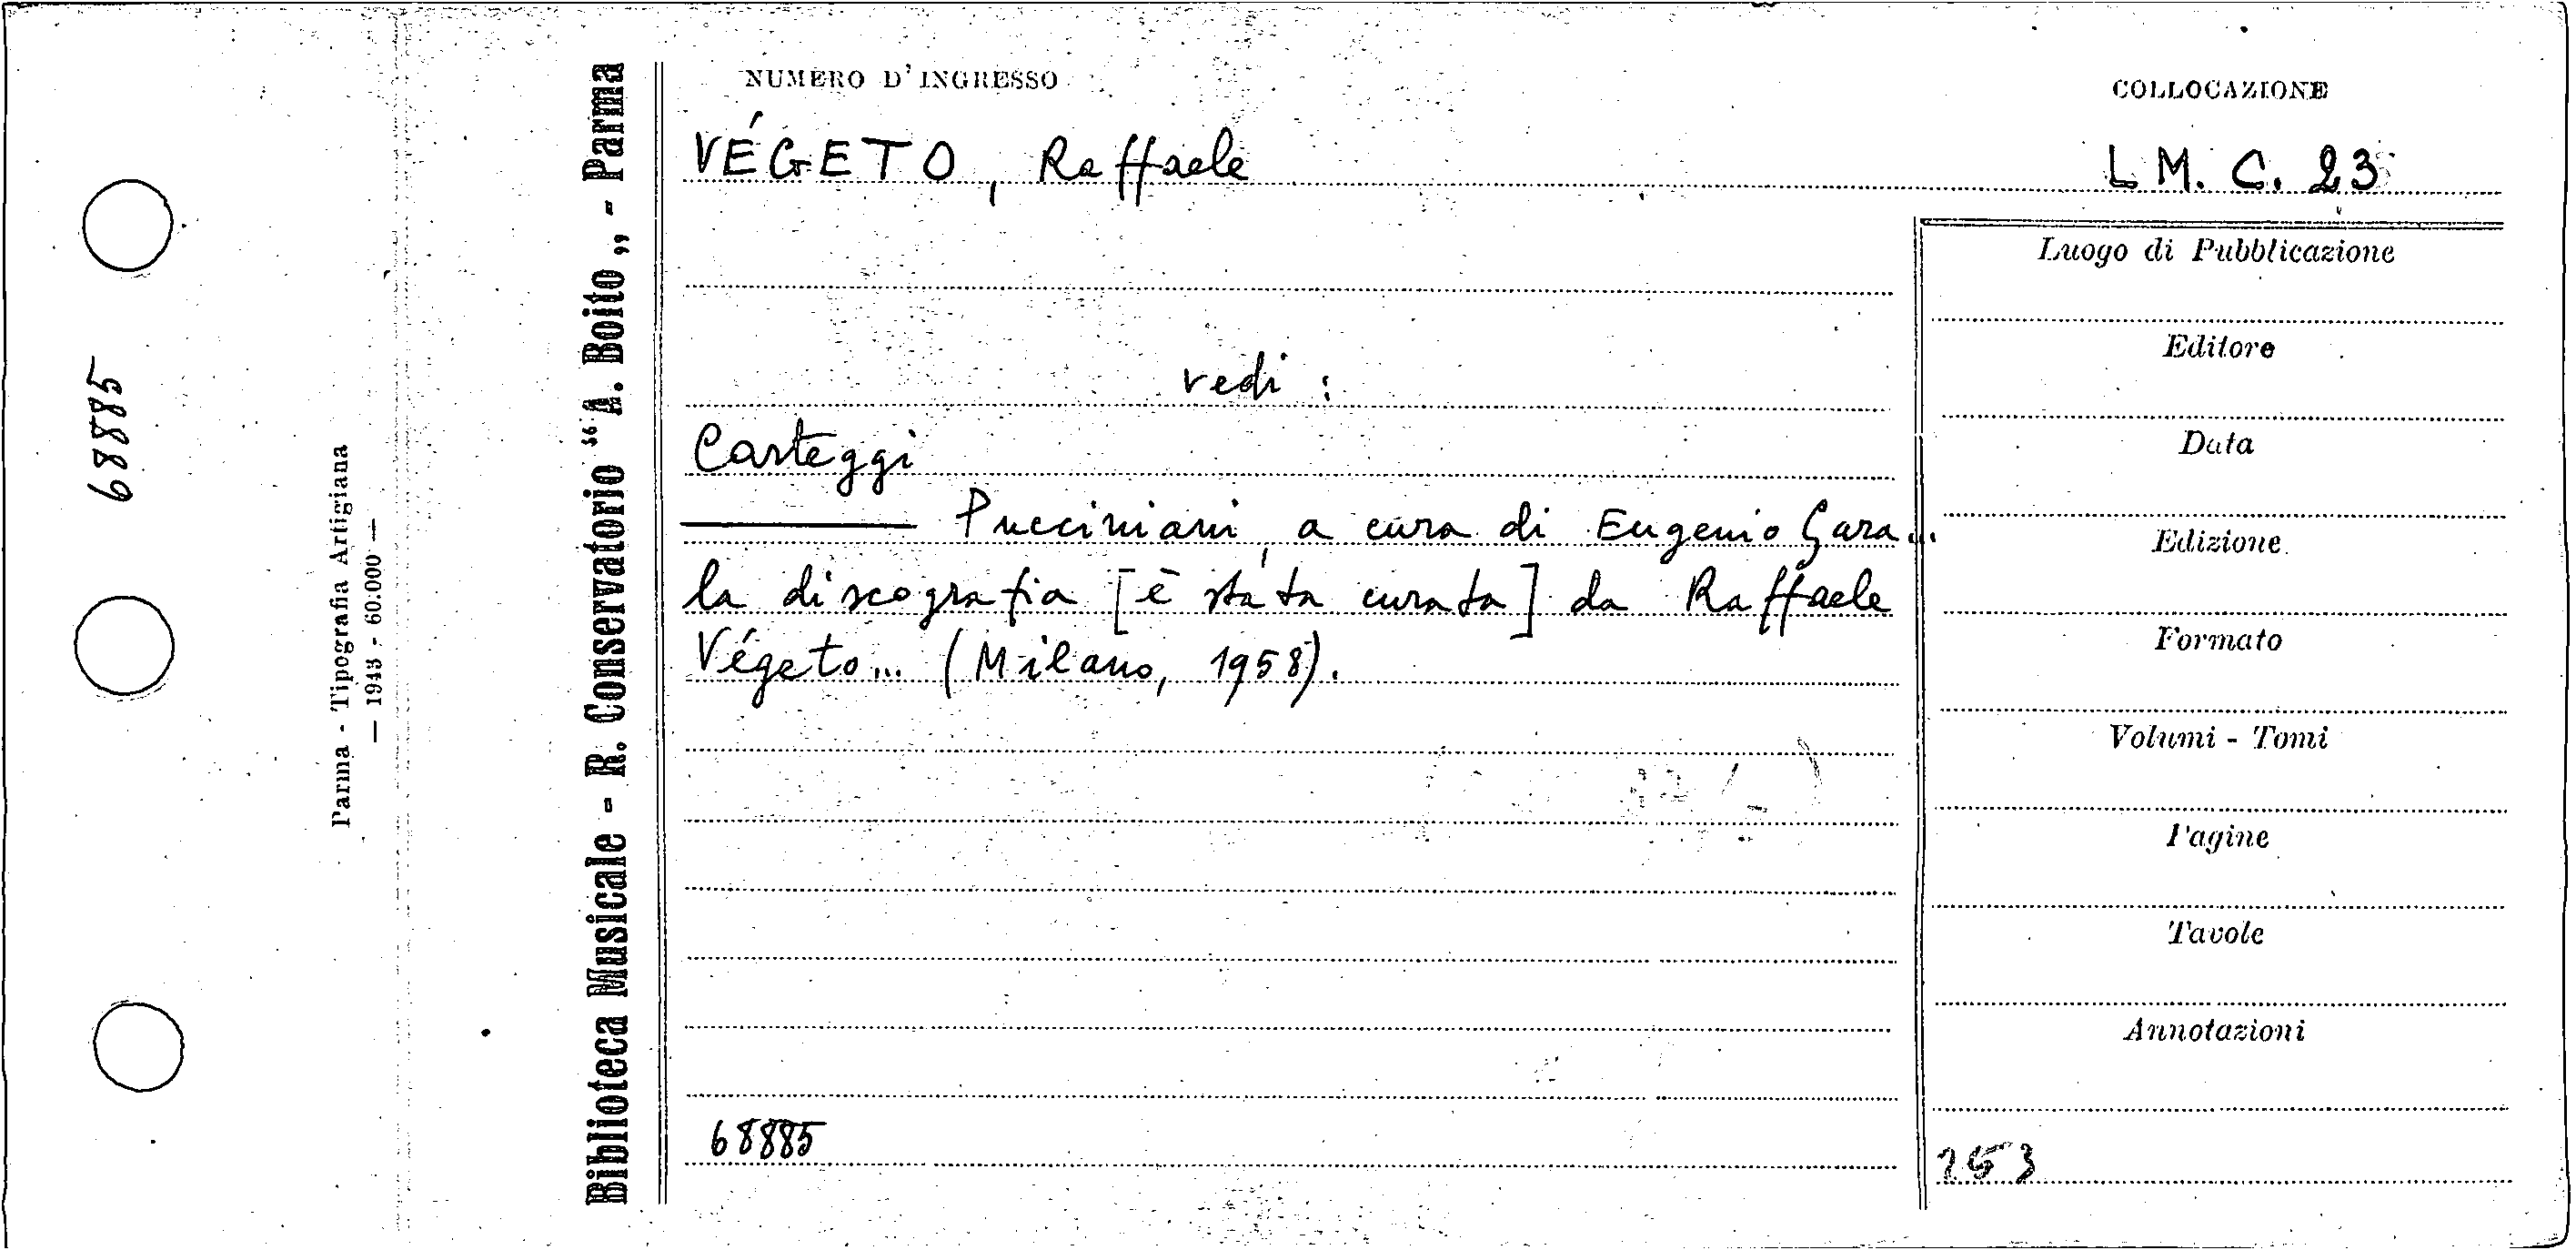 68885
Parma - Tipografia Artigiana
— 1943 - 60.000 —
Biblioteca Musicale - R. Conservatorio “A. Boito„ - Parma
NUMERO D'INGRESSO
COLLOCAZIONE
VÉGETO, Raffaele
L M. C. 23
vedi :
Carteggi
——— Pucciniani, a cura di Eugenio Gara...
la discografia [è stata curata] da Raffaele
Végeto... (Milano, 1958).
68885
Luogo di Pubblicazione
Editore
Data
Edizione
Formato
Volumi - Tomi
Pagine
Tavole
Annotazioni
253